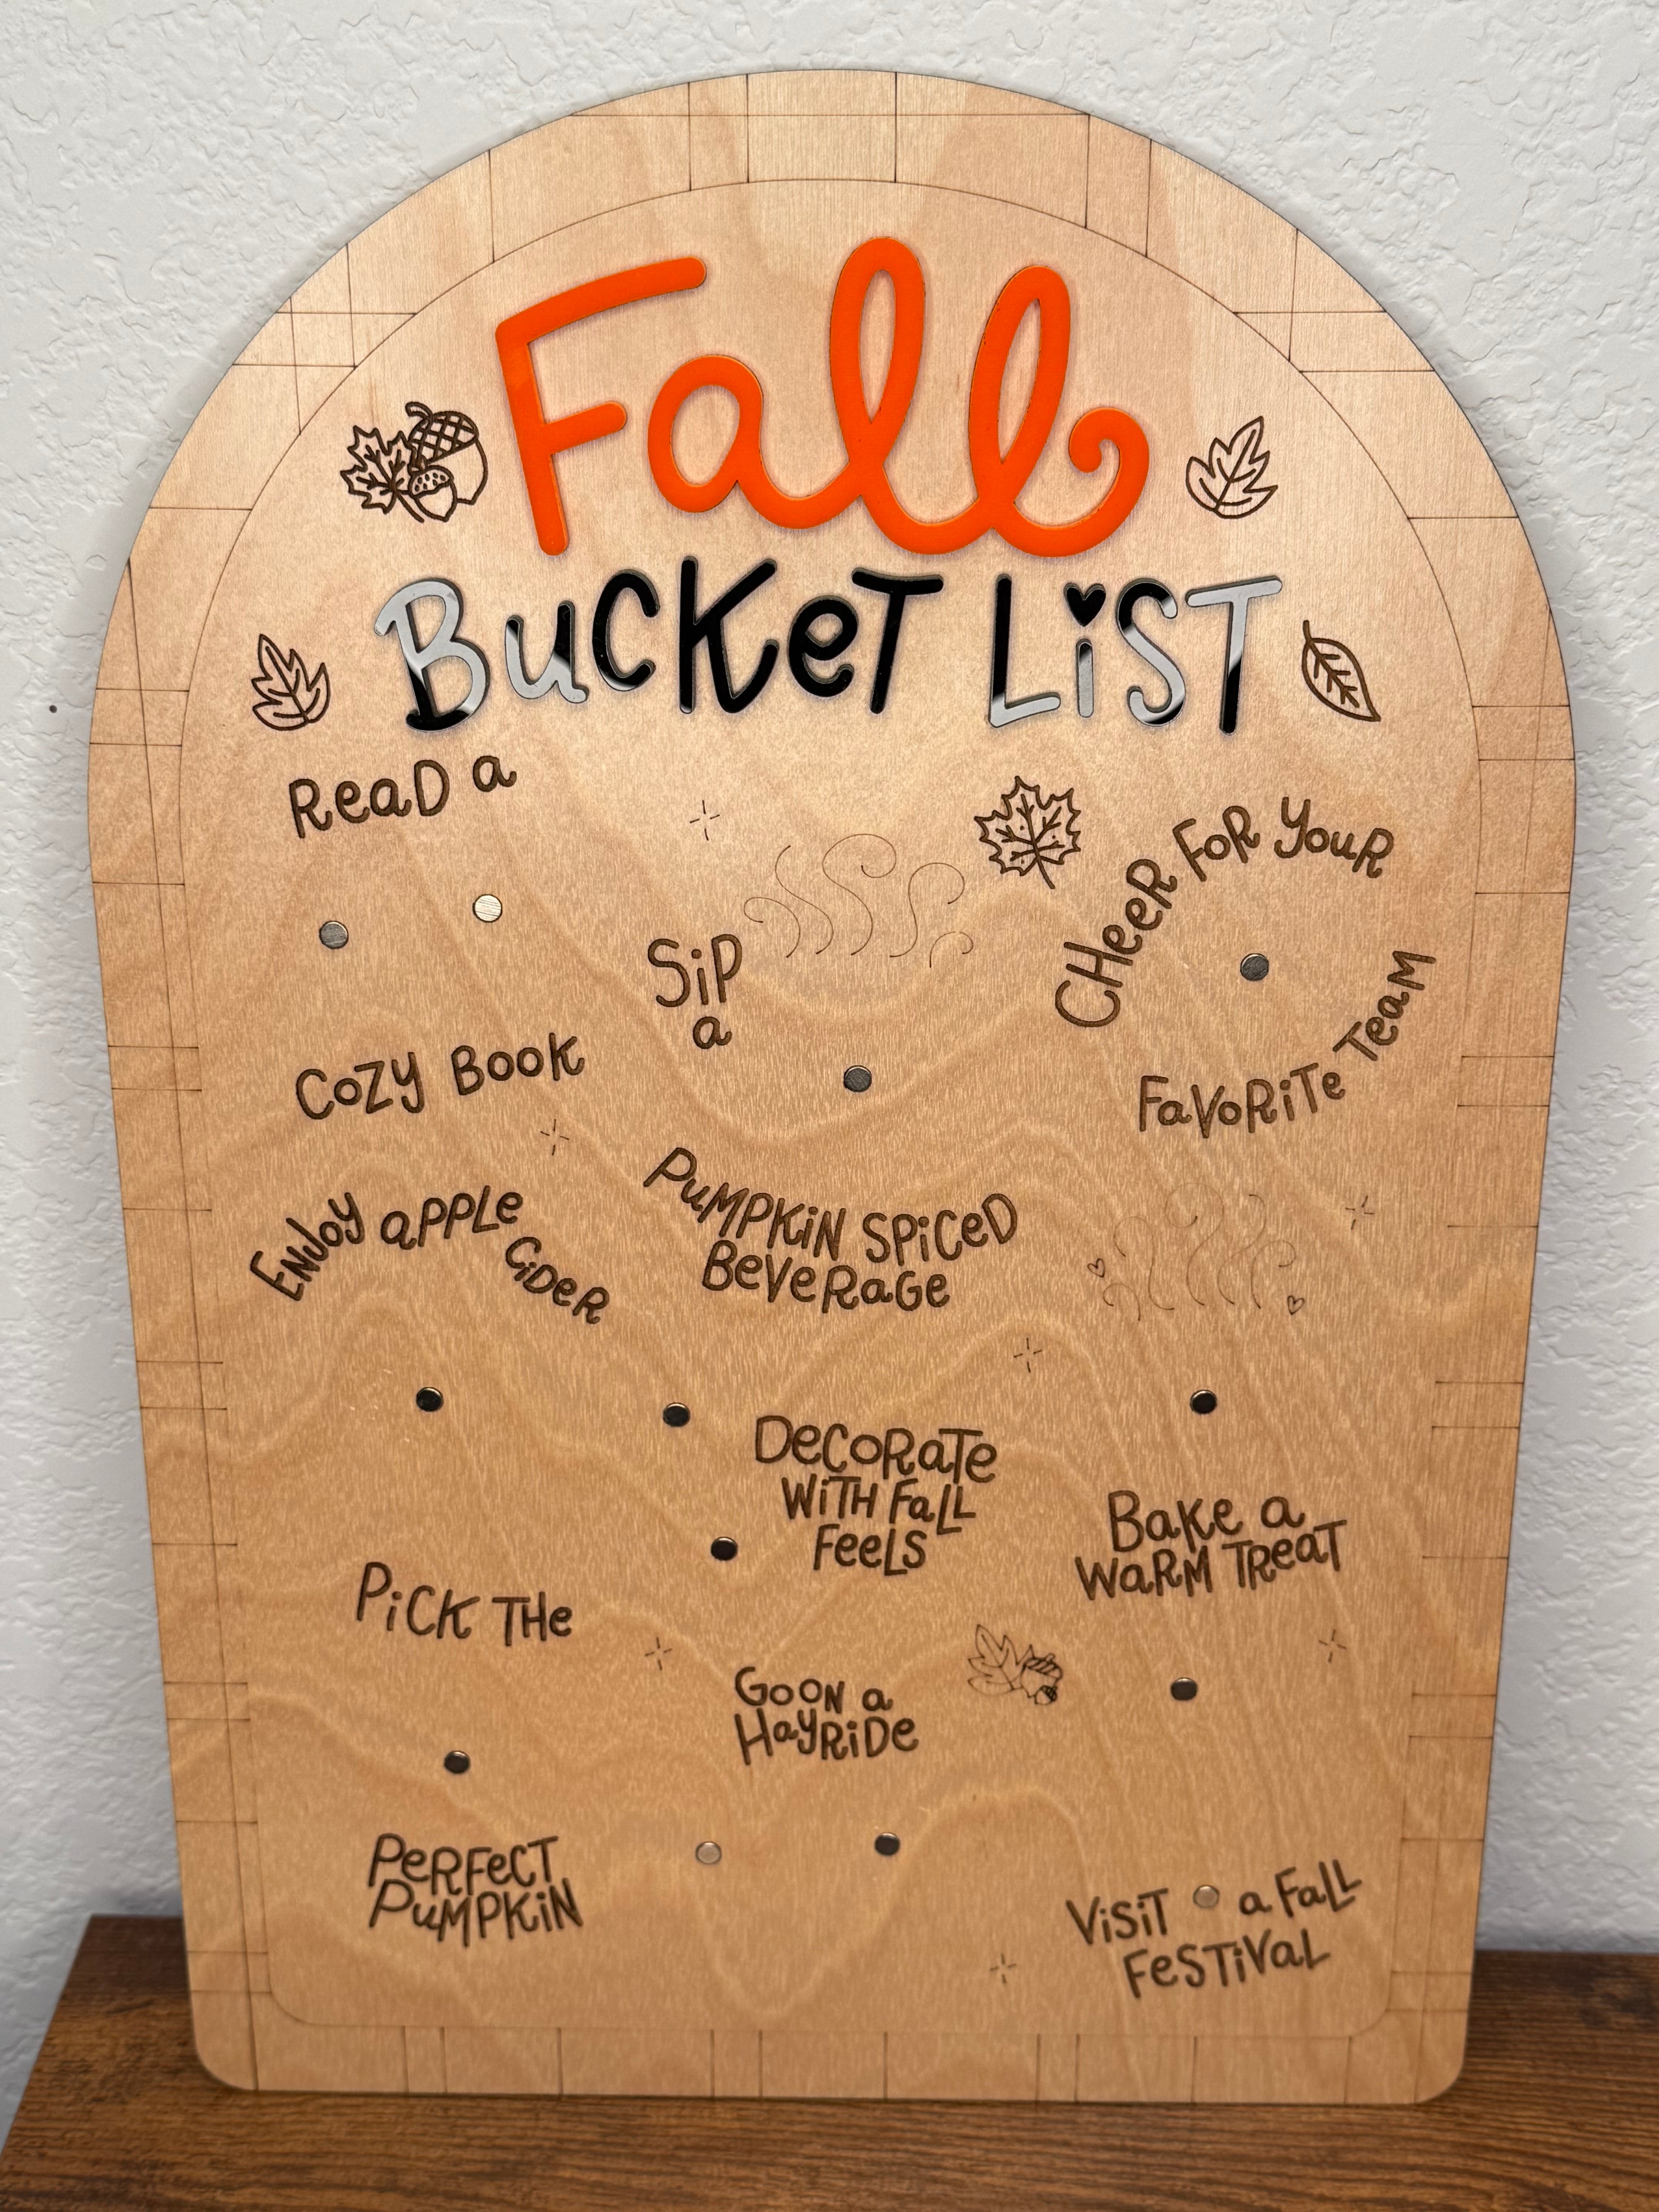 Fall
BUCKET LIST
READ a
COZY BOOK
SIP
a
PUMPKIN SPICED
BEVERAGE
CHEER FOR YOUR
FAVORITE TEAM
ENJOY APPLE CIDER
DECORATE
WITH FALL
FEELS
BAKE a
WARM TREAT
PICK THE
PERFECT
PUMPKIN
GO ON a
HAYRIDE
VISIT a FALL
FESTIVAL